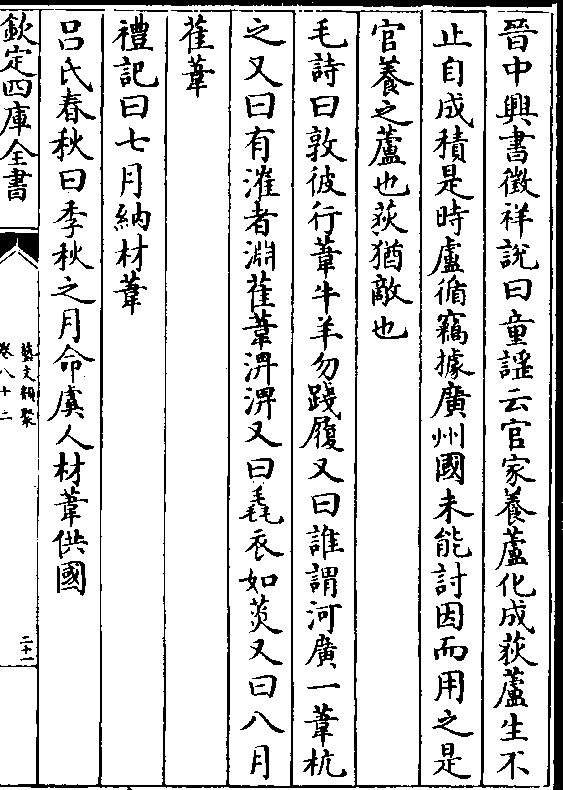 晉中興書徵祥說曰童謡云官家養蘆化成荻蘆生不
止自成積是時盧循竊據廣州國未能討因而用之是
官養之蘆也荻猶敵也
毛詩曰敦彼行葦牛羊勿踐履又曰誰謂河廣一葦杭
之又曰有漼者淵萑葦淠淠又曰毳衣如菼又曰八月
萑葦
禮記曰七月納材葦
吕氏春秋曰季秋之月命虞人材葦供國
欽定四庫全書
藝文類聚
卷八十二
二十一